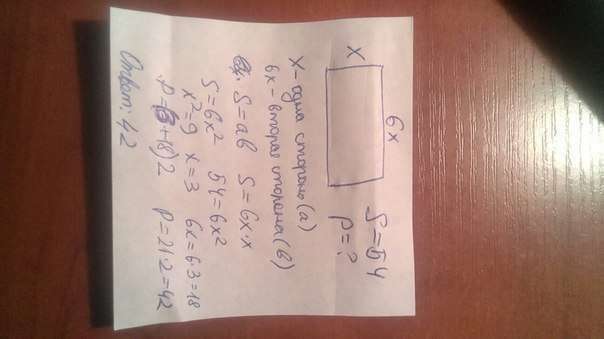 6x
x
S=54
P=?
x - одна сторона (a)
6x - вторая сторона (b)
S=ab S=6x·x
S=6x² 54=6x²
x²=9 x=3 6x=6·3=18
P=(3+18)2 P=21·2=42
Ответ: 42